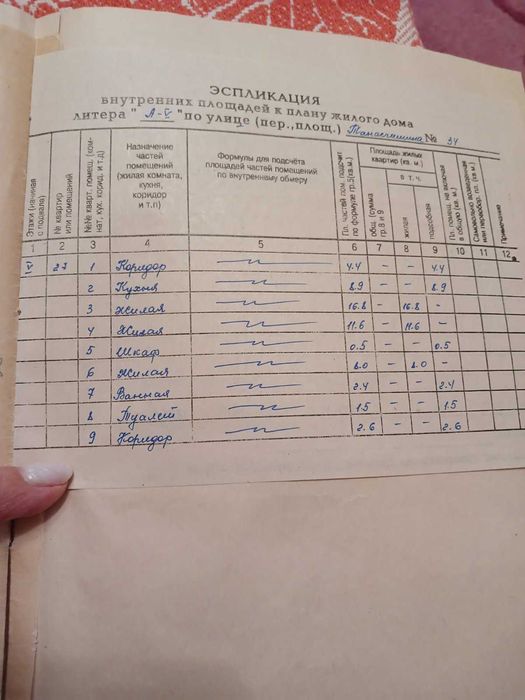 ЭСПЛИКАЦИЯ
внутренних площадей к плану жилого дома
литера " А-V " по улице (пер.,площ.) № 34
Этажи (начиная с подвала)
№ квартир или помещений.
№№ кварт, помещ. (комнат, кух. корид, и т.д)
Назначение частей помещений (жилая комната, кухня, коридор и т.п)
Формулы для подсчёта площадей частей помещений по внутреннему обмеру
Пл. частей пом. подсчит по формуле гр.5(кв.м)
Площадь жилых квартир (кв. м.)
в т. ч.
общ. (сумма гр.8 и 9
жилая
подсобная
Пл. помещ. не включая в общую (кв. м.)
Самовольно возведенная или переобор. пл. (кв м.)
Примечание
1 2 3 4 5 6 7 8 9 10 11 12
V 27 1 Коридор 4.4 – – 4.4
2 Кухня 8.9 – – 8.9
3 жилая 16.8 – 16.8 –
4 жилая 11.6 – 11.6 –
5 шкаф 0.5 – – 0.5
6 жилая 8.0 – 8.0 –
7 Ванная 2.4 – – 2.4
8 Туалет 1.5 – – 1.5
9 Коридор 2.6 – – 2.6